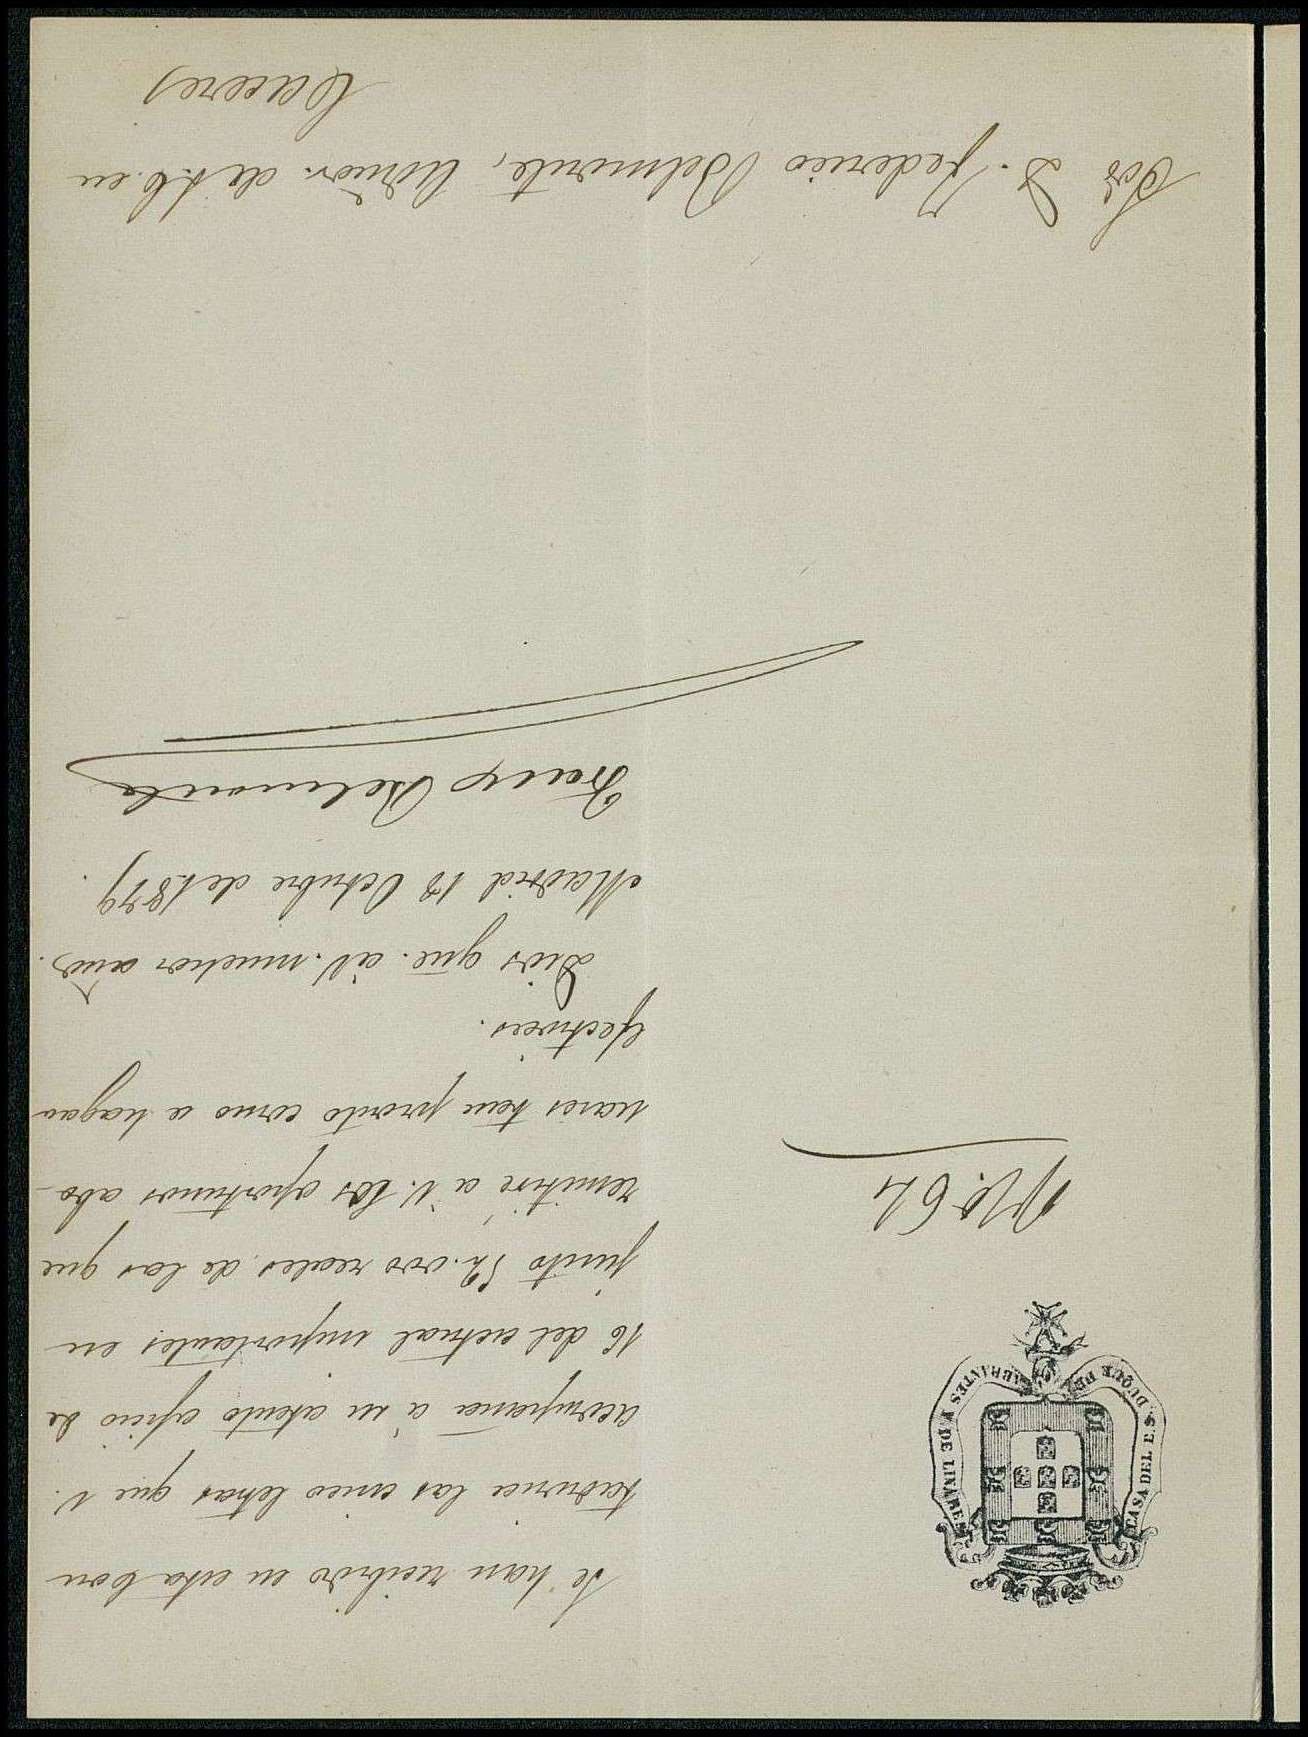 CASA DEL E.S. DUQUE DE ABRANTES Y DE LINARES
Nº. 64
Se han recibido en esta Con
taduria las cinco letras que V.
acompaña á su atento oficio de
16 del actual importantes en
junto 52.000 reales de las que
remitiré á V. los oportunos abo-
nares tan pronto como se hagan
efectivas.
Dios gue. á V. muchos añs.
Madrid 18 Octubre de 1879.
Franco Belmonte
Sor. D. Federico Belmonte, Admor. de S.E. en
Caceres